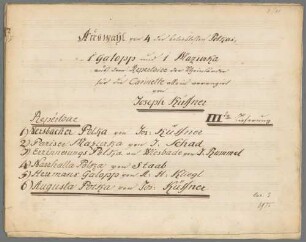 Auswahl von 4 der beliebtesten Polkas,
1 Galopp und 1 Mazurka
aus dem Repertoire der
für die Clarinette allein arrangirt
von
Joseph Küffner
Repertoire IIIte Lieferung
1) Polka von Jos: Küffner
2) Pariser Mazurka von J. Schad
3) Erinnerungs Polka an Wiesbaden von J. Hammel
4) Walhalla Polka von Staab
5) Hermanns Galopp von A. H. Kliegl
6) Augusta Polka von Jos: Küffner